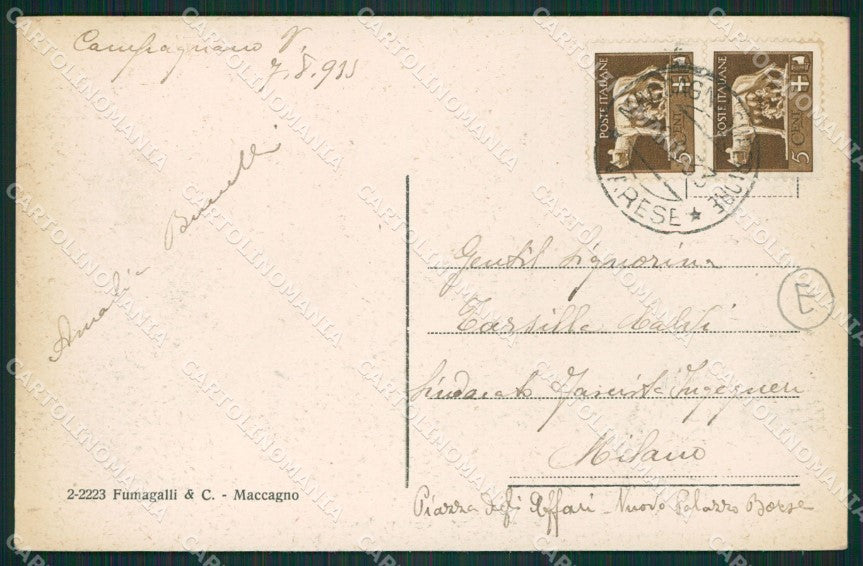 Campagnano V.
7.8.933
POSTE ITALIANE
5 CENT
POSTE ITALIANE
5 CENT
VARESE
Amalia
Gentil Signorina
Tarsilla
Sindacato Fascista Ingegneri
Milano
Piazza degli Affari - Nuovo Palazzo Borse
E
2-2223 Fumagalli & C. - Maccagno
CARTOLINOMANIA